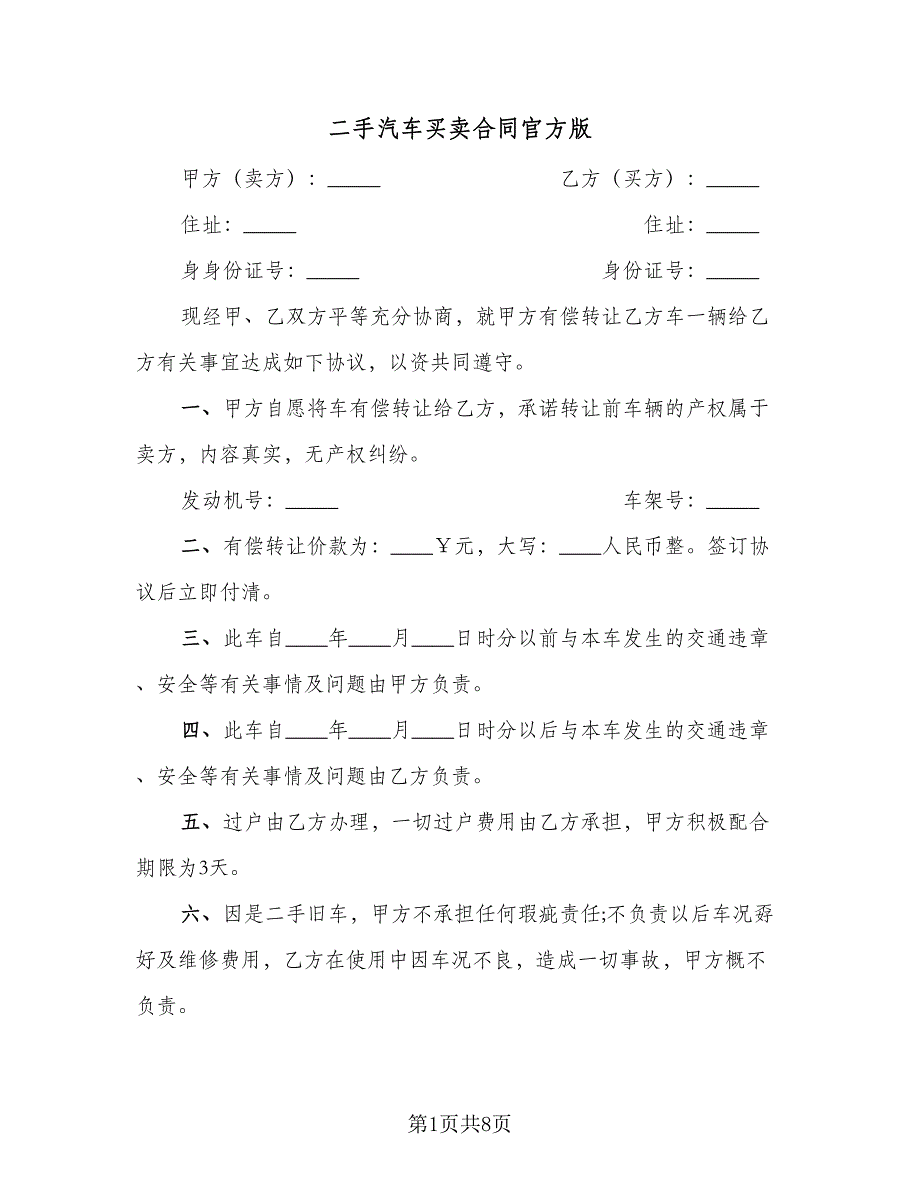 二手汽车买卖合同官方版
甲方（卖方）：_____ 乙方（买方）：_____
住址：_____ 住址：_____
身身份证号：_____ 身份证号：_____
现经甲、乙双方平等充分协商，就甲方有偿转让乙方车一辆给乙
方有关事宜达成如下协议，以资共同遵守。
一、甲方自愿将车有偿转让给乙方，承诺转让前车辆的产权属于
卖方，内容真实，无产权纠纷。
发动机号：_____ 车架号：_____
二、有偿转让价款为：____￥元，大写：____人民币整。签订协
议后立即付清。
三、此车自____年____月____日时分以前与本车发生的交通违章
、安全等有关事情及问题由甲方负责。
四、此车自____年____月____日时分以后与本车发生的交通违章
、安全等有关事情及问题由乙方负责。
五、过户由乙方办理，一切过户费用由乙方承担，甲方积极配合
期限为3天。
六、因是二手旧车，甲方不承担任何瑕疵责任;不负责以后车况孬
好及维修费用，乙方在使用中因车况不良，造成一切事故，甲方概不
负责。
第1页共8页